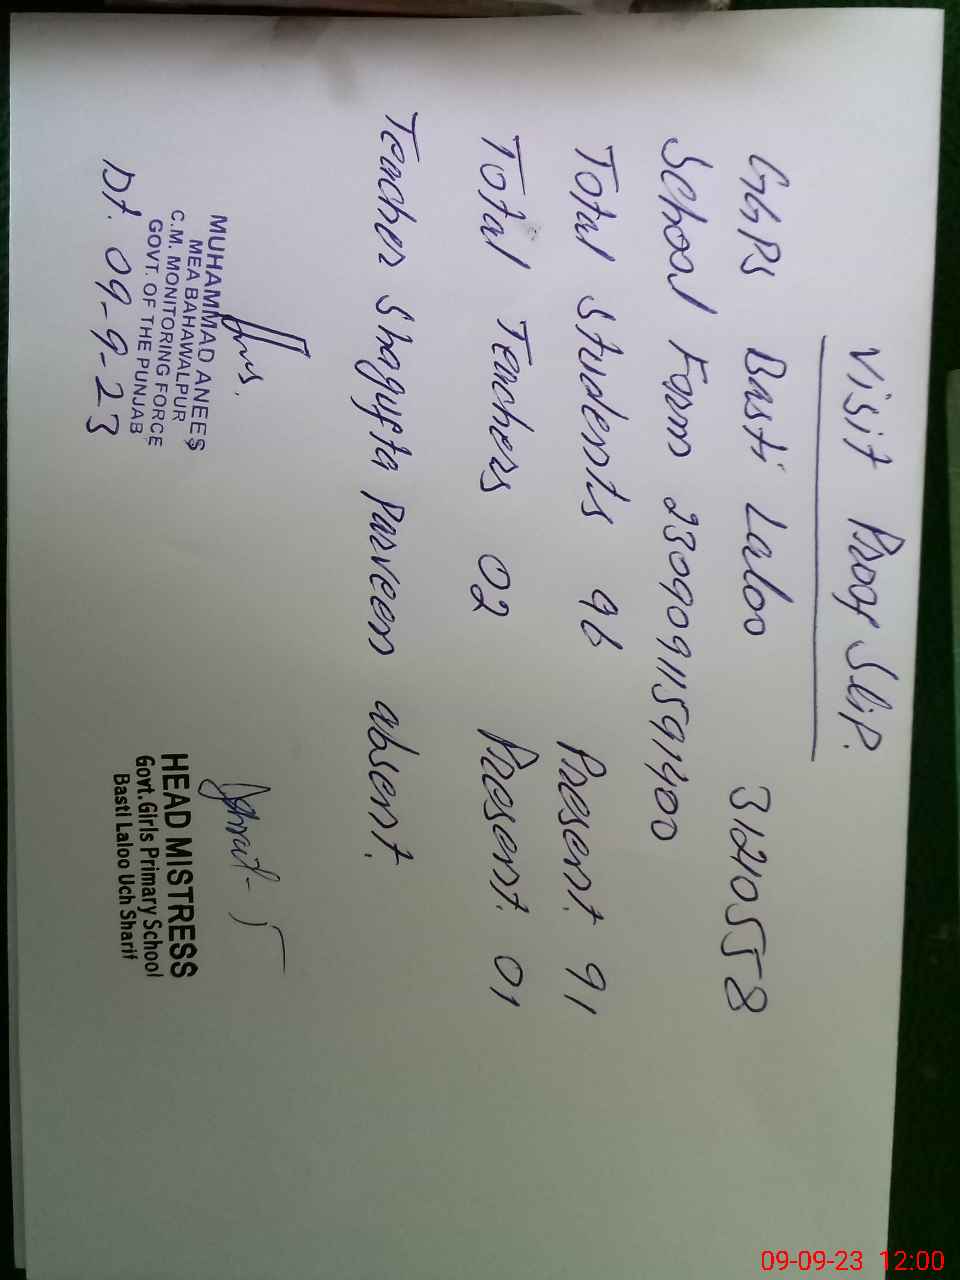 Visit Proof Slip.
GGPS Basti Laloo 31240558
School Form 23090911591400
Total Students 96 Present. 91
Total Teachers 02 Present. 01
Teacher Shagufta Parveen absent.
MUHAMMAD ANEES
MEA BAHAWALPUR
C.M. MONITORING FORCE
GOVT. OF THE PUNJAB
Dt. 09-9-23
HEAD MISTRESS
Govt. Girls Primary School
Basti Laloo Uch Sharif
09-09-23 12:00